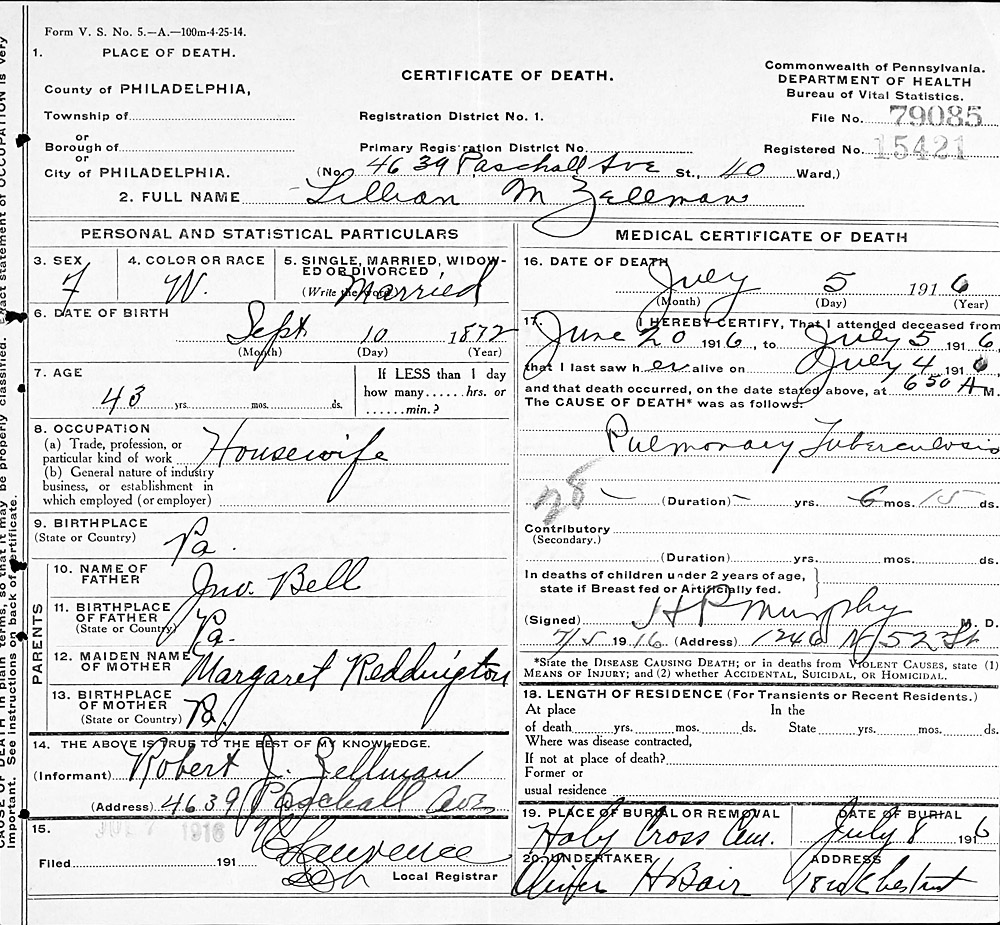 Form V. S. No. 5.—A.—100m-4-25-14.
1. PLACE OF DEATH.
County of PHILADELPHIA,
Township of
or
Borough of
or
City of PHILADELPHIA.
CERTIFICATE OF DEATH.
Registration District No. 1.
Primary Registration District No.
(No. 4639 Paschall Ave St., 40 Ward.)
Commonwealth of Pennsylvania.
DEPARTMENT OF HEALTH
Bureau of Vital Statistics.
File No. 79085
Registered No. 15421
2. FULL NAME Lillian M Zellman
PERSONAL AND STATISTICAL PARTICULARS
3. SEX
F
4. COLOR OR RACE
W.
5. SINGLE, MARRIED, WIDOW-
ED OR DIVORCED
(Write the word)
Married
6. DATE OF BIRTH
Sept 10 1872
(Month) (Day) (Year)
7. AGE
43 yrs. mos. ds.
If LESS than 1 day
how many......hrs. or
......min.?
8. OCCUPATION
(a) Trade, profession, or
particular kind of work Housewife
(b) General nature of industry
business, or establishment in
which employed (or employer)
9. BIRTHPLACE
(State or Country)
Pa.
PARENTS
10. NAME OF
FATHER
Jno. Bell
11. BIRTHPLACE
OF FATHER
(State or Country)
Pa.
12. MAIDEN NAME
OF MOTHER
Margaret Reddington
13. BIRTHPLACE
OF MOTHER
(State or Country)
Pa.
14. THE ABOVE IS TRUE TO THE BEST OF MY KNOWLEDGE.
(Informant) Robert J. Zellman
(Address) 4639 Paschall Ave
15.
1916
Filed 191
Lawrence
Local Registrar
MEDICAL CERTIFICATE OF DEATH
16. DATE OF DEATH
July 5 1916
(Month) (Day) (Year)
17. I HEREBY CERTIFY, That I attended deceased from
June 20 1916, to July 5 1916,
that I last saw her alive on July 4 1916,
and that death occurred, on the date stated above, at 650 A M.
The CAUSE OF DEATH* was as follows:
Pulmonary Tuberculosis
28
(Duration) yrs. 6 mos. 15 ds.
Contributory
(Secondary.)
(Duration) yrs. mos. ds.
In deaths of children under 2 years of age,
state if Breast fed or Artificially fed.
(Signed) H P Murphy M. D.
7/5 1916 (Address) 1246 N 52 St
*State the DISEASE CAUSING DEATH; or in deaths from VIOLENT CAUSES, state (1)
MEANS OF INJURY; and (2) whether ACCIDENTAL, SUICIDAL, OR HOMICIDAL.
18. LENGTH OF RESIDENCE (For Transients or Recent Residents.)
At place In the
of death yrs. mos. ds. State yrs. mos. ds.
Where was disease contracted,
If not at place of death?
Former or
usual residence
19. PLACE OF BURIAL OR REMOVAL
Holy Cross Cem.
DATE OF BURIAL
July 8 1916
20. UNDERTAKER
Oliver H Bair
ADDRESS
1820 Chestnut
CAUSE OF DEATH in plain terms, so that it may be properly classified. Exact statement of OCCUPATION is very
important. See instructions on back of certificate.